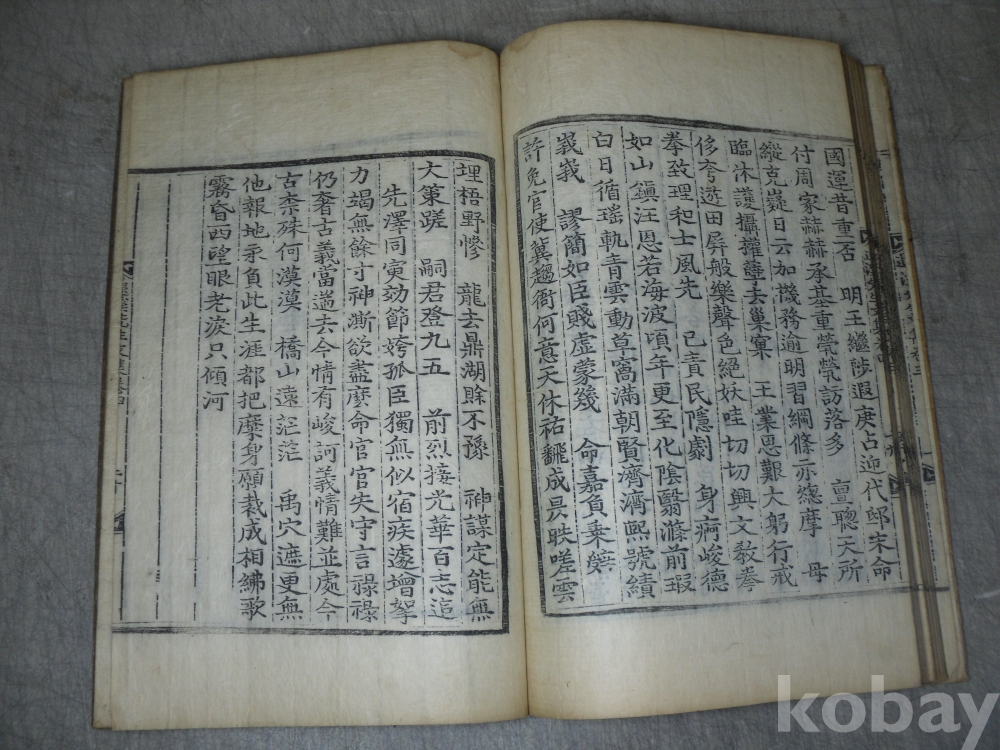 國運昔重否 明王繼陟遐庚占迎代邸末命
付周家赫赫承基重煢煢訪落多 亶聰天所
縱克嶷日云加機務逾明習綱條亦總摩 母
臨休護攝權孽去巢窠 王業思艱大躬行戒
侈夸遊田屏般樂聲色絕妖哇切切興文敎拳
拳致理和士風先 己責民隱劇 身痾峻德
如山鎭汪恩若海波頃年更至化陰翳滌前瑕
白日循瑤軌靑雲動草窩滿朝賢濟濟熙號績
峩峩 謬簡如臣賤虛蒙幾 命嘉負乘
許免官使冀趨衙何意天休祐飜成昃昳嗟雲
埋梧野慘 龍去鼎湖賖不豫 神謀定能無
大策蹉 嗣君登九五 前烈接光華百志追
先澤同寅効節姱孤臣獨無似宿疾遽增拏
力竭無餘寸神澌欲盡麽命官官失守言祿祿
仍奢古義當遄去今情有峻訶義情難並處今
古柰殊何漠漠 橋山遠茫茫 禹穴遮更無
他報地永負此生涯都把摩身願裁成相紼歌
霧昏西望眼老淚只傾河
kobay